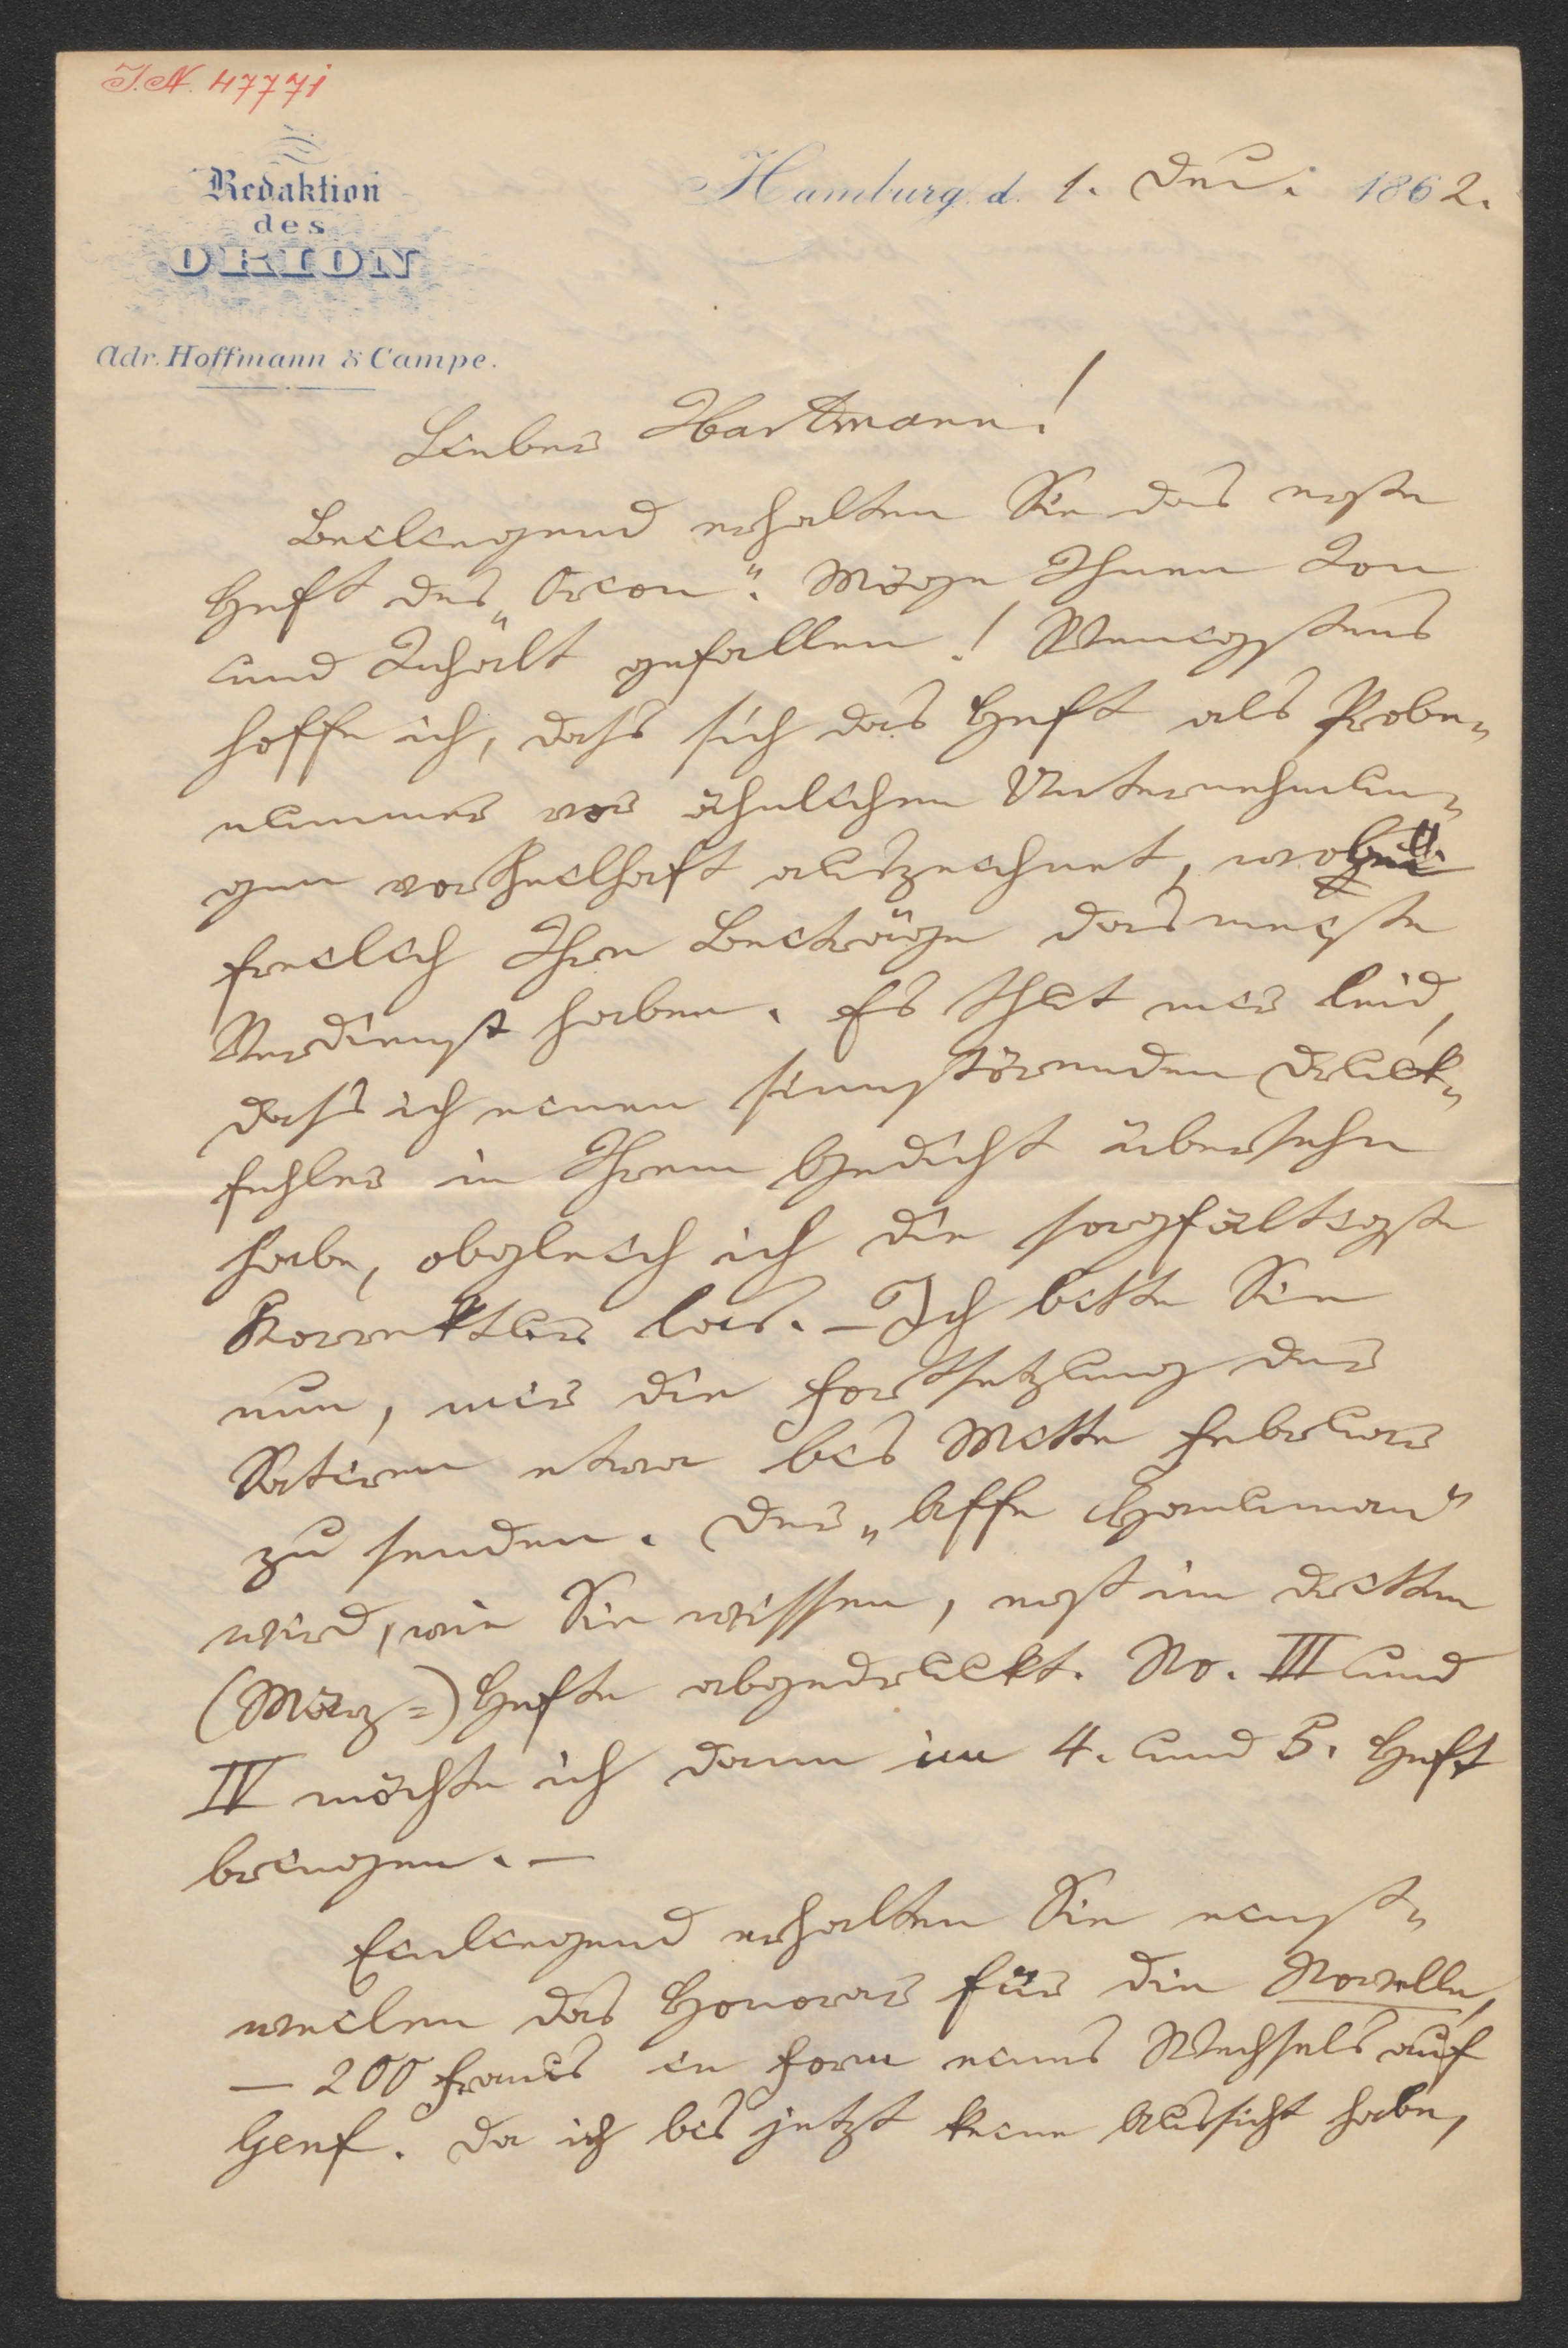 I.N. 47771
Redaktion
des
ORION
Adr. Hoffmann & Campe.
Hamburg. d. 1. Dez. 1862.
Lieber Hartmann!
Beiliegend erhalten Sie das erste
Heft des „Orion“. Möge Ihnen Ton
und Inhalt gefallen! Wenigstens
hoffe ich, daſs sich das Heft als Probe-
nummer vor ähnlichen Unternehmun-
gen vortheilhaft auszeichnet, wobei
freilich Ihre Beiträge das meiste
Verdienst haben. Es thut mir leid,
daſs ich einen sinnstörenden Druck-
fehler in Ihrem Gedicht übersehn
habe, obgleich ich die sorgfältigste
Korrektur las. – Ich bitte Sie
nun, mir die Fortsetzung der
Satiren etwa bis Mitte Februar
zu senden. Der „Affe Hanuman“
wird, wie Sie wissen, erst im dritten
(März=) Hefte abgedruckt. No. III und
IV möchte ich dann im 4. und 5. Heft
bringen. –
Einliegend erhalten Sie einst-
weilen das Honorar für die Novelle,
– 200 Francs in Form eines Wechsels auf
Genf. Da ich bis jetzt keine Aussicht habe,